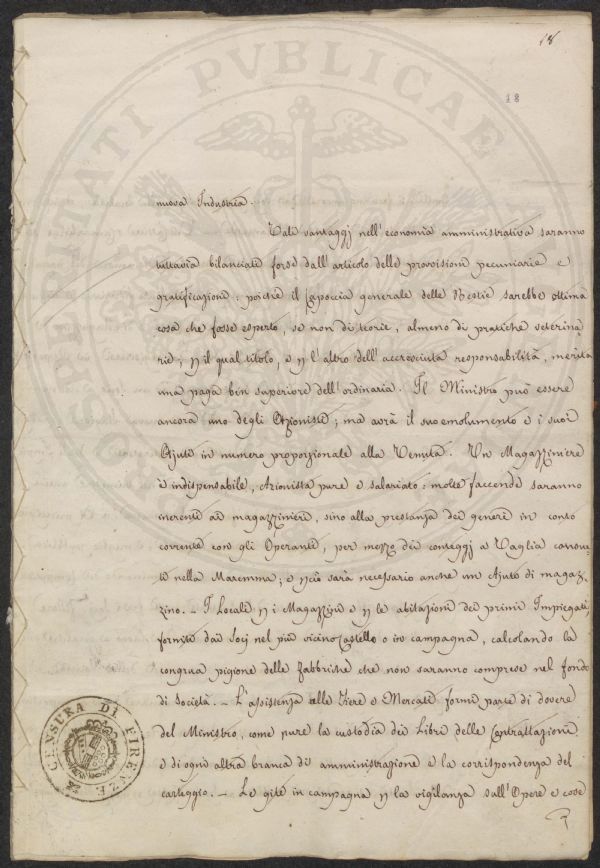 18
18
nuova Industria.
Tali vantaggj nell'economia amministrativa saranno
tuttavia bilanciati forse dall'articolo delle provvisioni pecuniarie e
gratificazioni: poichè il Capoccia generale delle Bestie sarebbe ottima
cosa che fosse esperto, se non di teorie, almeno di pratiche veterina
rie; p il qual titolo, e p l'altro dell'accresciuta responsabilità, merita
una paga ben superiore dell'ordinaria. Il Ministro può essere
ancora uno degli Azionisti; ma avrà il suo emolumento e i suoi
Ajuti in numero proporzionale alla Tenuta. Un Magazziniere
è indispensabile, Azionista pure e salariato: molte faccende saranno
inerenti ai magazzinieri, sino alla prestanza dei generi in conto
corrente con gli Operanti, per mezzo dei conteggj a Taglia conosciu
ti nella Maremma; e p ciò sarà necessario anche un Ajuto di magaz-
zino. - I Locali p i Magazzini e p le abitazioni dei primi Impiegati,
forniti dai Socj nel più vicino Castello o in campagna, calcolando la
congrua pigione delle fabbriche che non saranno comprese nel fondo
di Società. - L'assistenza alle Fiere e Mercati formi parte di dovere
del Ministro, come pure la custodia dei Libri delle Contrattazioni
e di ogni altra branca di amministrazione e la corrispondenza del
carteggio. - Le gite in campagna p la vigilanza sull'Opere e cose
CENSURA DI FIRENZE